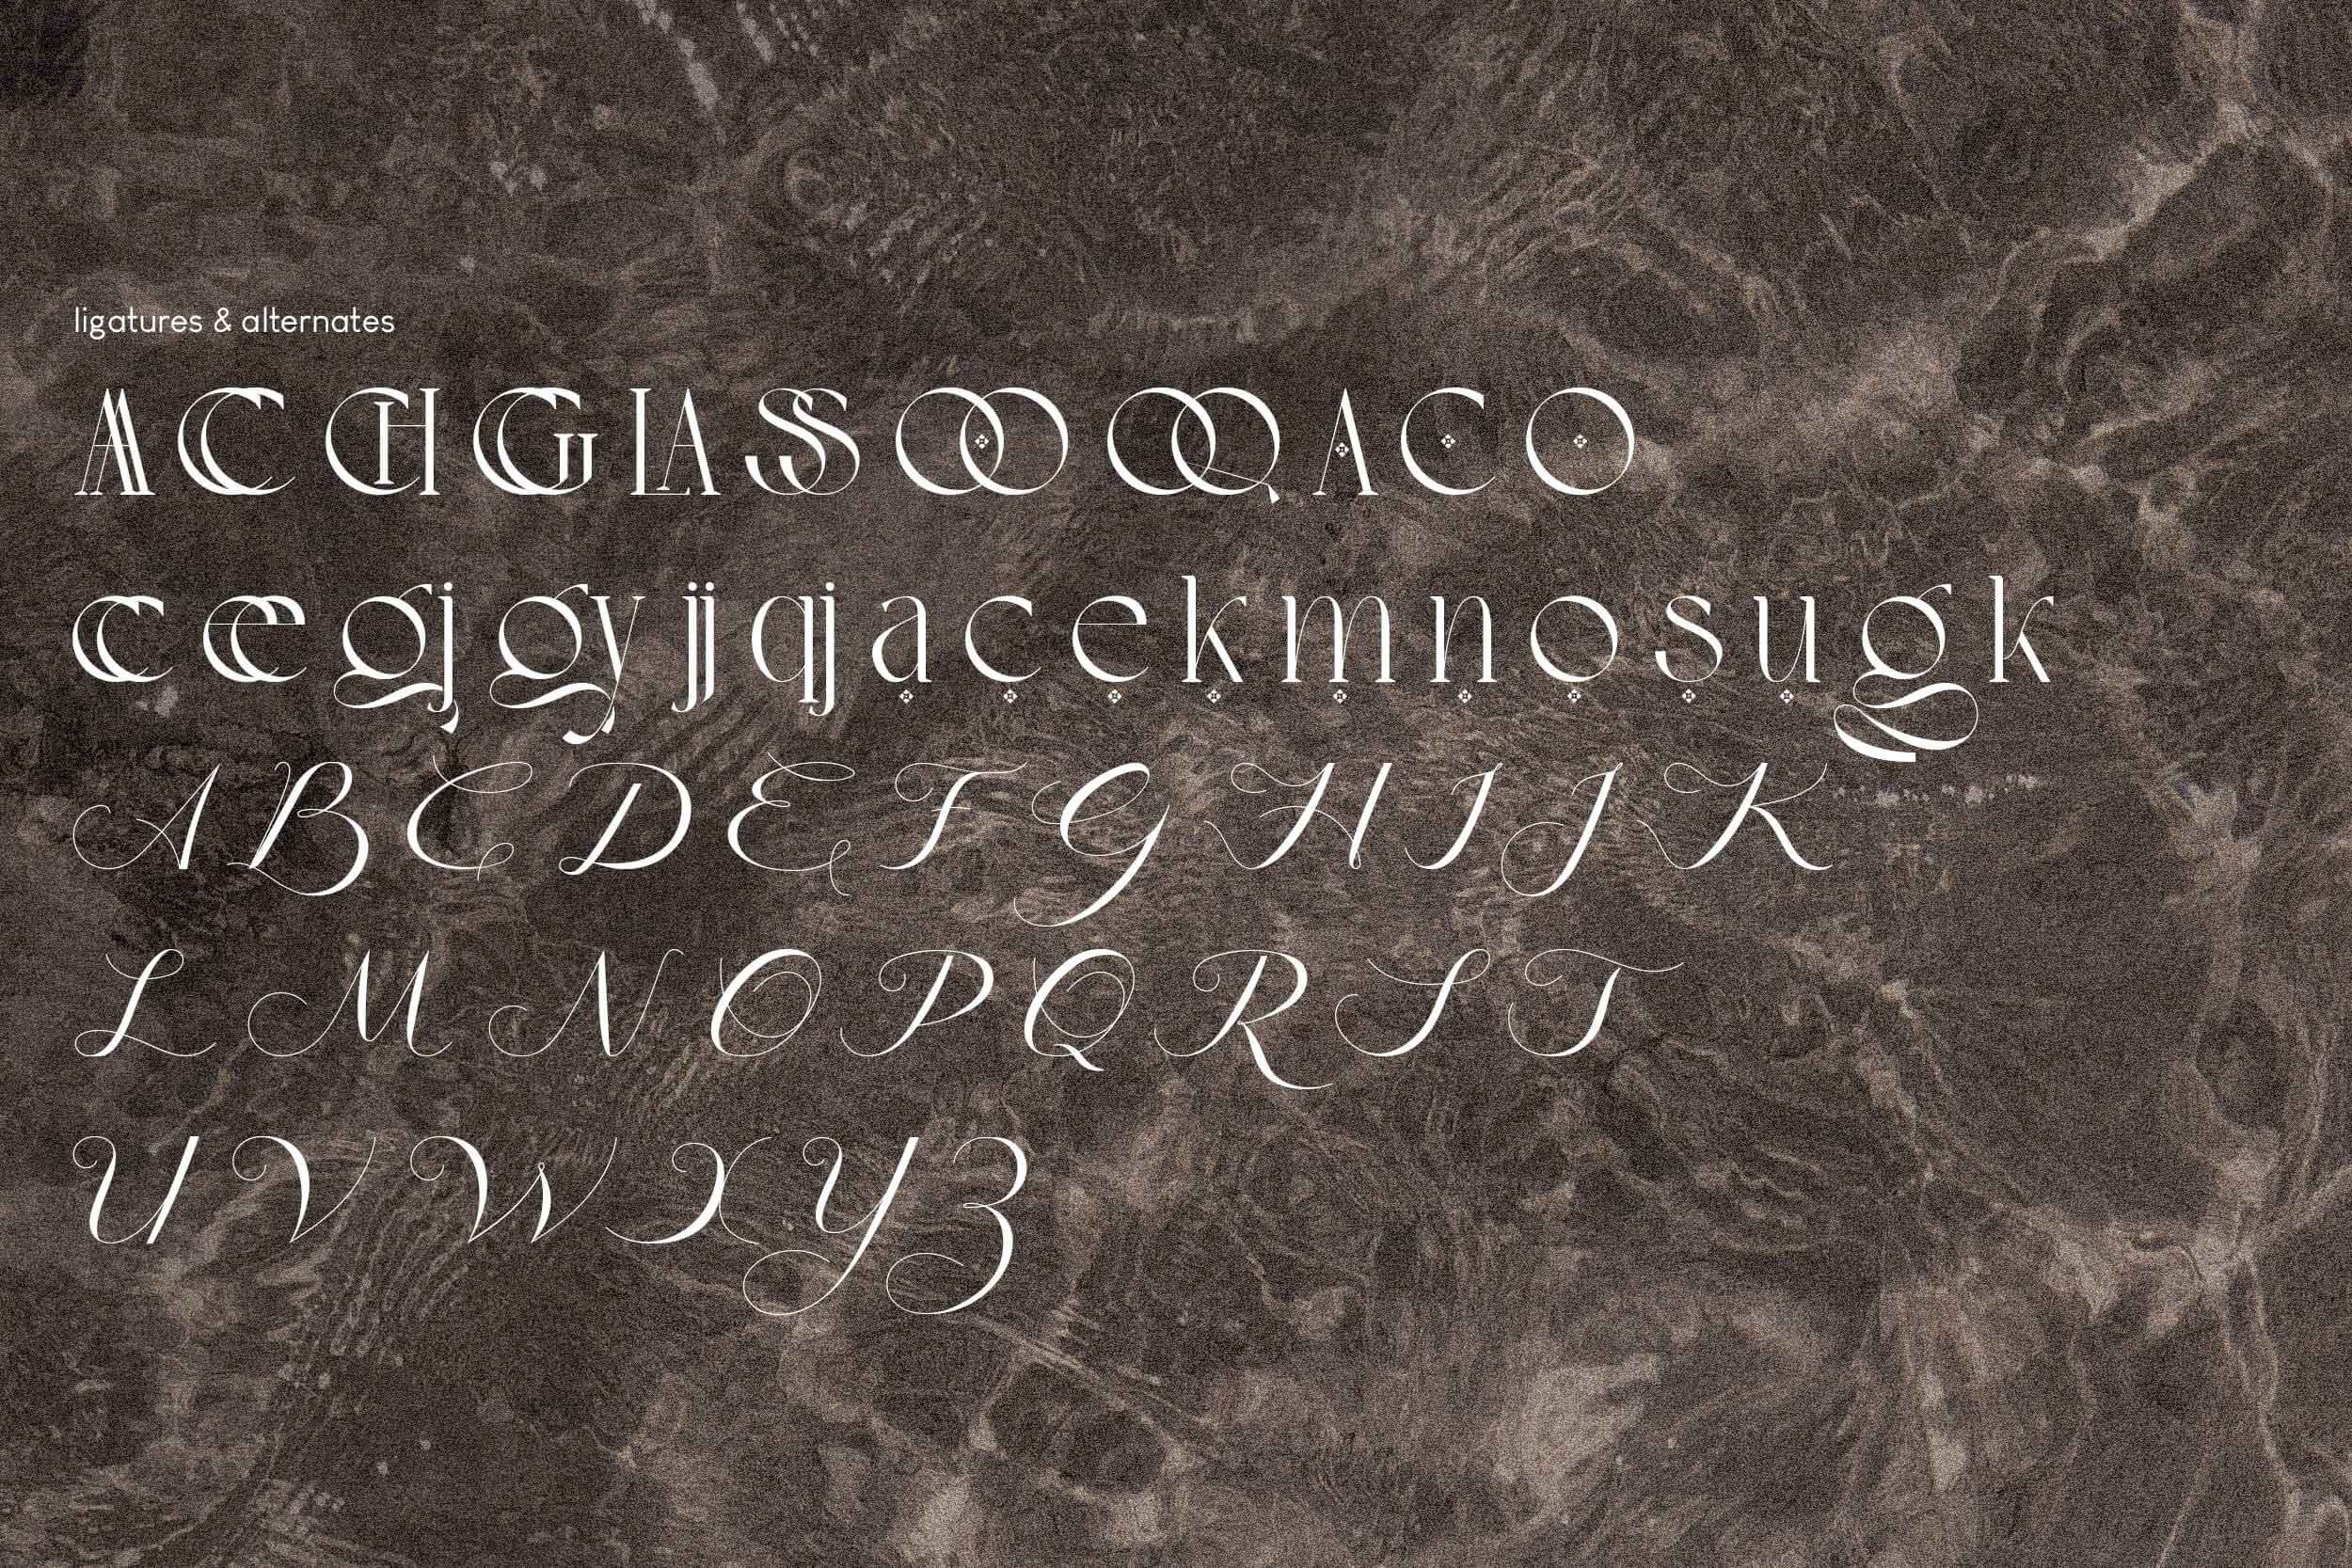 ligatures & alternates
AA CC CH CG LA SS OO OQ A C O
cc ce gj gy jj qj a c e k m n o s u g k
A B C D E F G H I J K
L M N O P Q R S T
U V W X Y Z